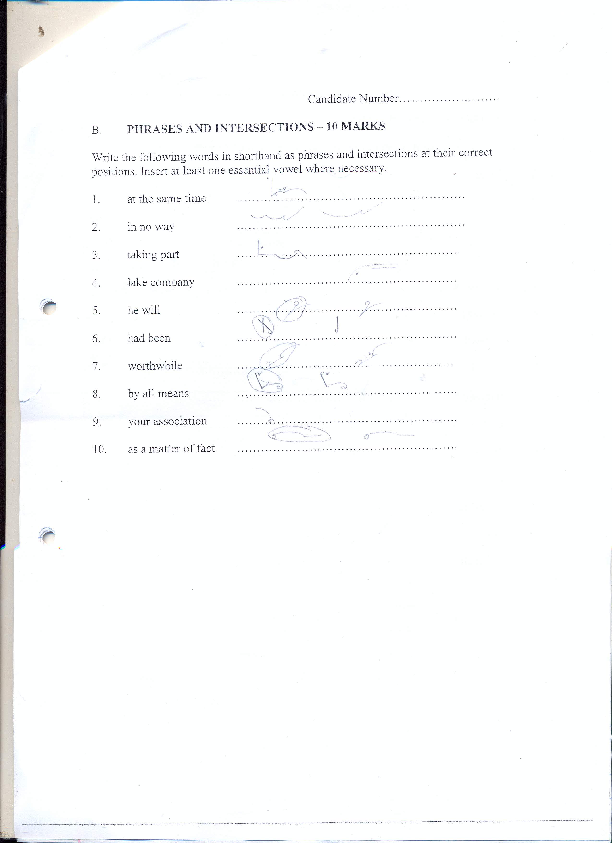 Candidate Number..........................
B. PHRASES AND INTERSECTIONS – 10 MARKS
Write the following words in shorthand as phrases and intersections at their correct
positions. Insert at least one essential vowel where necessary.
1. at the same time
2. in no way
3. taking part
4. lake company
5. he will
6. had been
7. worthwhile
8. by all means
9. your association
10. as a matter of fact